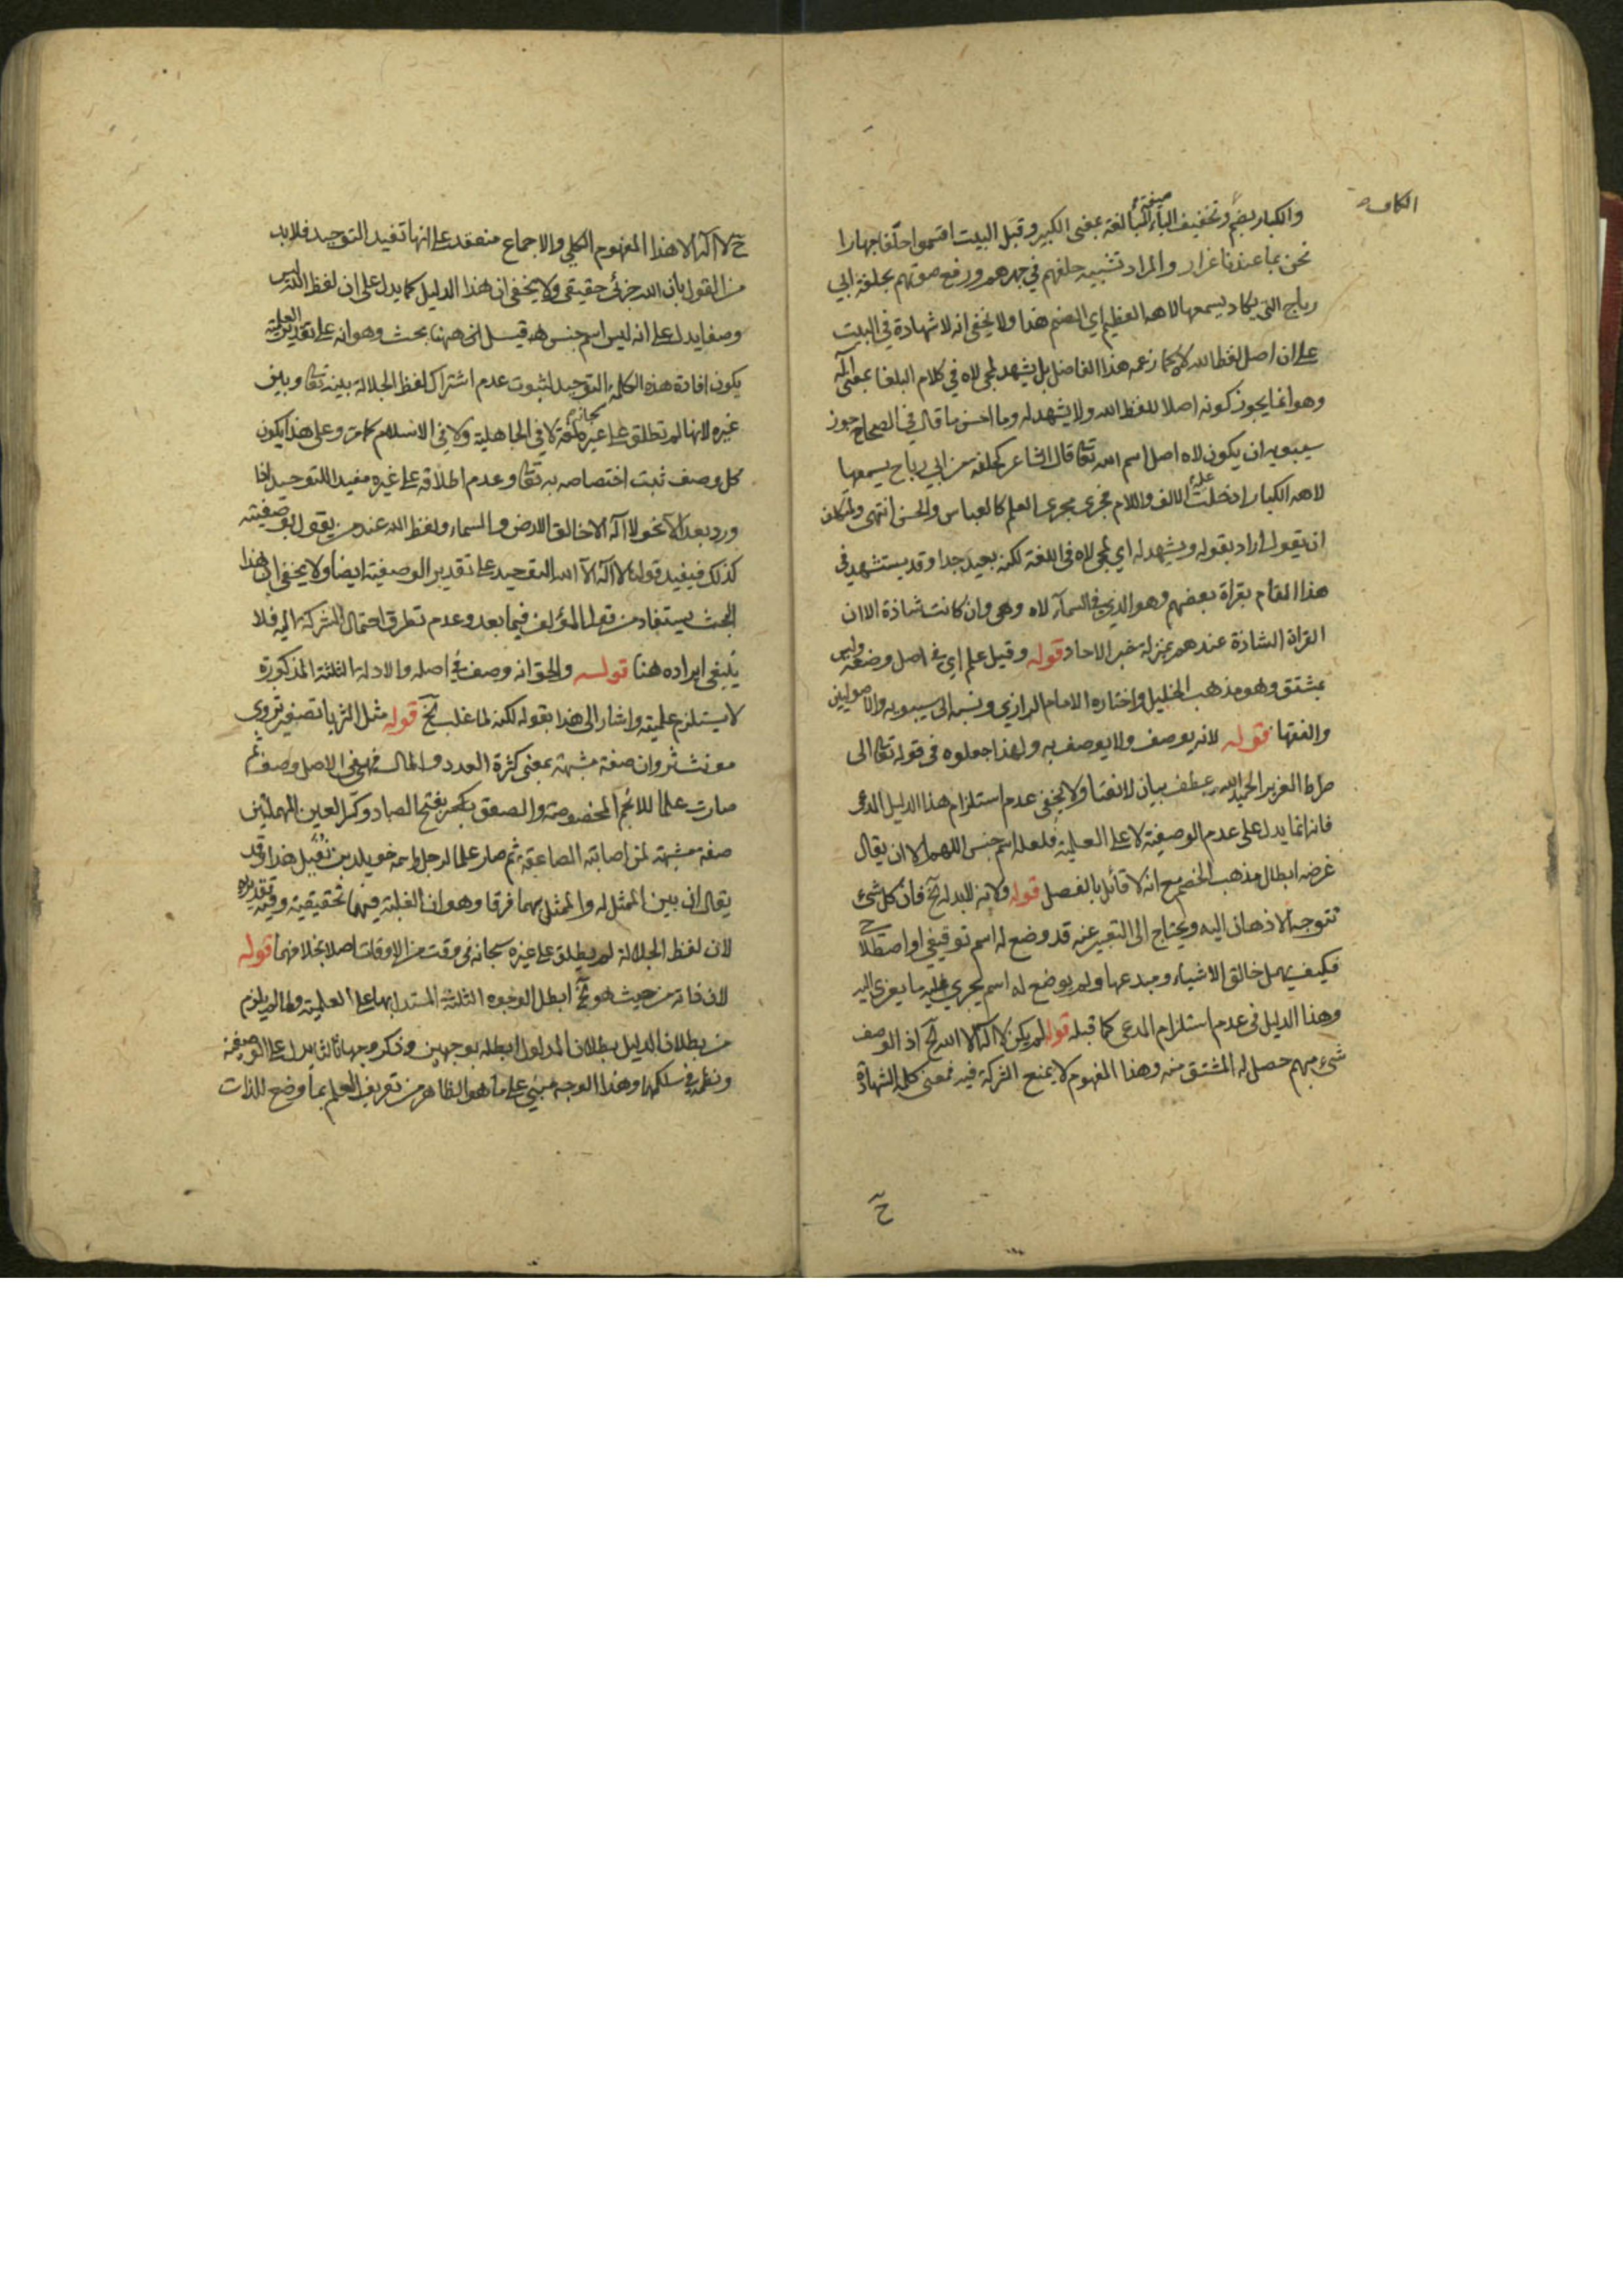 الكاف
والكبار بضم وتخفيف الباء صيغة المبالغة بمعنى الكبير وقبل البيت اقسموا حلفا جهارا
نحن بما عندنا غرار والمراد تشبيه حلفهم في جهرهم ورفع صوتهم بحلفة ابي
رباح التي يكاد يسمعها لاهه العظيم اي الصنم هذا ولا يخفى انه لا شهادة في البيت
على ان اصل لفظ الله لاه كما زعمه هذا الفاضل بل يشهد لمجئ لاه في كلام البلغا بمعنى آله
وهو انما يجوز كونه اصلا للفظ الله ولا يشهد له وما احسن ما قال في الصحاح جوز
سيبويه ان يكون لاه اصل اسم الله تعالى قال الشاعر كحلفة من ابي رباح يسمعها
لاهه الكبار ادخلت عليه الالف واللام فجرى مجرى العلم كالعباس والحسن انتهى ويمكن
ان يقول اراد بقوله ويشهد له اي لمجئ لاه في اللغة لكنه بعيد جدا وقد يستشهد في
هذا المقام بقراة بعضهم وهو الذي في السمآء لاه وهي وان كانت شاذة الا ان
القراة الشاذة عندهم بمنزلة خبر الاحاد قوله وقيل علم اي في اصل وضعه وليس
بمشتق وهو مذهب الخليل واختاره الامام الرازي ونسبه الى سيبويه والاصوليين
والفقها قوله لانه يوصف ولا يوصف به ولهذا جعلوه في قوله تعالى الى
صراط العزيز الحميد الله عطف بيان لا نعتا ولا يخفى عدم استلزام هذا الدليل المدعى
فانه انما يدل على عدم الوصفية لا على العلمية فلعله اسم جنس اللهم الا ان يقال
غرضه ابطال مذهب الخصم مع انه لا قائل بالفصل قوله ولانه لابد له آلخ فان كل شئ
تتوجه الاذهان اليه ويحتاج الى التعبير عنه قد وضع له اسم توقيفي او اصطلاحي
فكيف يهمل خالق الاشياء ومبدعها ولم يوضع له اسم يجري عليه ما يعزى اليه
وهذا الدليل في عدم استلزام المدعى كما قبله قوله لم يكن لا اله الا الله آلخ اذ الوصف
شئ مبهم حصل له المشتق منه وهذا المفهوم لا يمنع الشركة فيه فمعنى كلمة الشهادة
ح
ح لا اله الا هذا المفهوم الكلي والاجماع منعقد على انها تفيد التوحيد فلابد
من القول بان الله جزئي حقيقي ولا يخفى ان هذا الدليل كما يدل على ان لفظ الله ليس
وصفا يدل على انه ليس اسم جنس قيل ان ههنا بحث وهو انه على تقدير العلمية
يكون افادة هذه الكلمة التوحيد لثبوت عدم اشتراك لفظ الجلالة بينه تعالى وبين
غيره لانها لم تطلق على غيره سبحانه لا في الجاهلية ولا في الاسلام كما مر وعلى هذا يكون
كل وصف ثبت اختصاصه به تعالى وعدم اطلاقه على غيره مفيدا للتوحيد اذا
ورد بعد الا نحو لا اله الا خالق الارض والسماء ولفظ الله عند من يقول بوصفيته
كذلك فيفيد قولنا لا اله الا الله التوحيد على تقدير الوصفية ايضا ولا يخفى ان هذا
البحث يستفاد من قول المؤلف فيما بعد وعدم تطرق احتمال الشركة اليه فلا
ينبغي ايراده هنا قوله والحق انه وصف في اصله والادلة الثلثة المذكورة
لا يستلزم علميته واشار الى هذا بقوله لكنه لما غلب آلخ قوله مثل الثريا تصغير ثروى
مونث ثروان صفة مشبهة بمعنى كثرة العدد والمال فهي في الاصل وصف ثم
صارت علما للانجم المخصوصة والصعق بفتح الصاد وكسر العين المهملتين
صفة مشبهة لمن اصابته الصاعقة ثم صار علما لرجل اسمه خويلد بن نفيل هذا وقد
يقال ان بين الممثل له والممثل بهما فرقا وهو ان الغلبة فيهما تحقيقية وفيه تقديرية
لان لفظ الجلالة لم يطلق على غيره سبحانه في وقت من الاوقات اصلا بخلافهما قوله
لان ذاته من حيث هو آلخ ابطل الوجوه الثلثة المستدل بها على العلمية ولما لم يلزم
من بطلان الدليل بطلان المدلول ابطله بوجهين وذكر وجها ثالثا يدل على الوصفية
ونظمه في سلكهما وهذا الوجه مبني على ما هو الظاهر من تعريف العلم بما وضع للذات